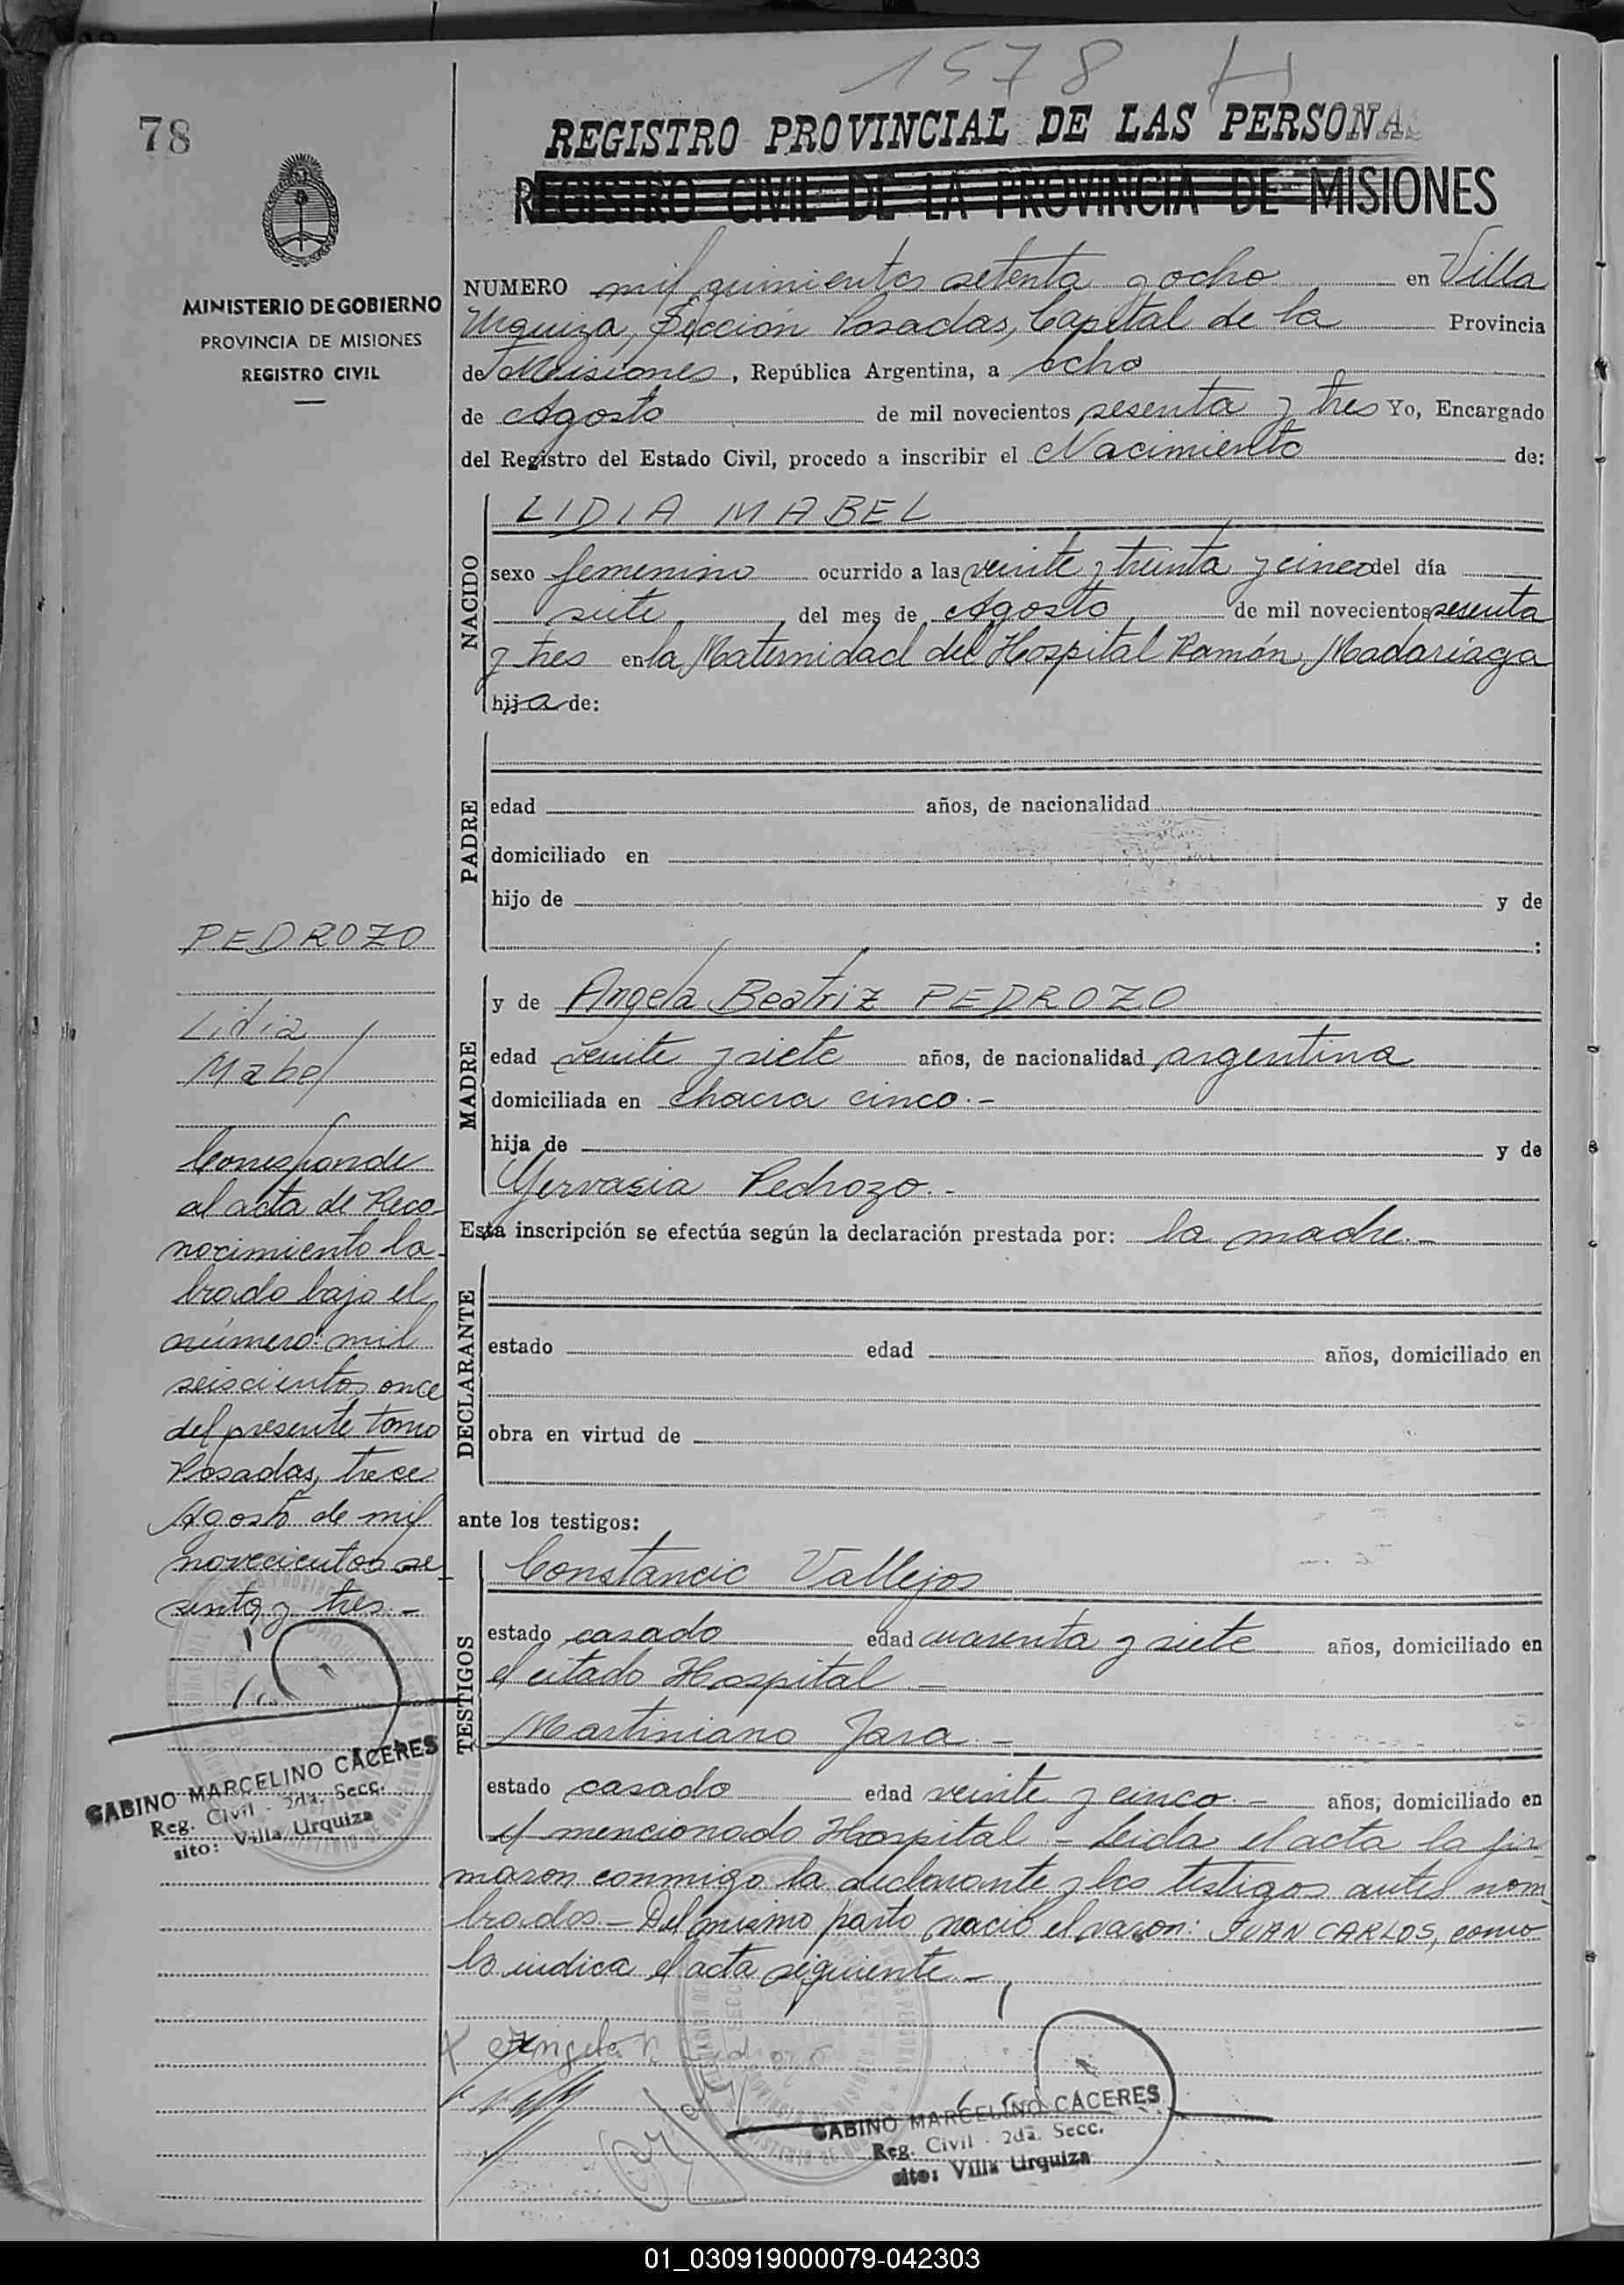 1578 H
78
REGISTRO PROVINCIAL DE LAS PERSONAS
REGISTRO CIVIL DE LA PROVINCIA DE MISIONES
MINISTERIO DE GOBIERNO
PROVINCIA DE MISIONES
REGISTRO CIVIL
NUMERO mil quinientos setenta y ocho en Villa
Urquiza, Sección Posadas, Capital de la Provincia
de Misiones, República Argentina, a ocho
de Agosto de mil novecientos sesenta y tres Yo, Encargado
del Registro del Estado Civil, procedo a inscribir el Nacimiento de:
NACIDO
LIDIA MABEL
sexo femenino ocurrido a las veinte y treinta y cinco del día
siete del mes de Agosto de mil novecientos sesenta
y tres en la Maternidad del Hospital Ramón Madariaga
hija de:
PADRE
edad años, de nacionalidad
domiciliado en
hijo de y de
:
MADRE
y de Angela Beatriz PEDROZO
edad veinte y siete años, de nacionalidad argentina
domiciliada en chacra cinco.-
hija de y de
Gervasia Pedrozo.-
Esta inscripción se efectúa según la declaración prestada por: la madre.-
DECLARANTE
estado edad años, domiciliado en
obra en virtud de
ante los testigos:
TESTIGOS
Constancio Vallejos
estado casado edad cuarenta y siete años, domiciliado en
el citado Hospital -
Martiniano Jara.-
estado casado edad veinte y cinco.- años, domiciliado en
el mencionado Hospital - Leida el acta la fir-
maron conmigo la declarante y los testigos antes nom-
brados.- Del mismo parto nació el varon: JUAN CARLOS, como
lo indica el acta siguiente.-
PEDROZO
Lidia
Mabel
Corresponde
al acta de Reco-
nocimiento la-
brado bajo el
número: mil
seiscientos once
del presente tomo
Posadas, trece
Agosto de mil
novecientos se-
senta y tres.-
GABINO MARCELINO CACERES
Reg. Civil - 2da. Secc.
sito: Villa Urquiza
GABINO MARCELINO CACERES
Reg. Civil - 2da. Secc.
sito: Villa Urquiza
01_030919000079-042303